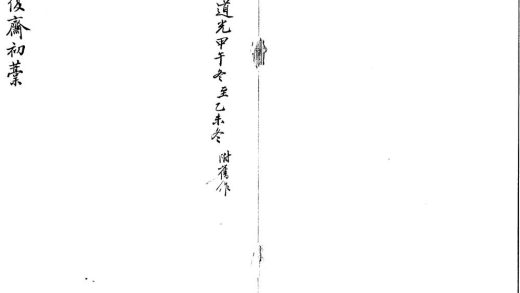 道光甲午冬至乙未冬 附舊作
齋初藁